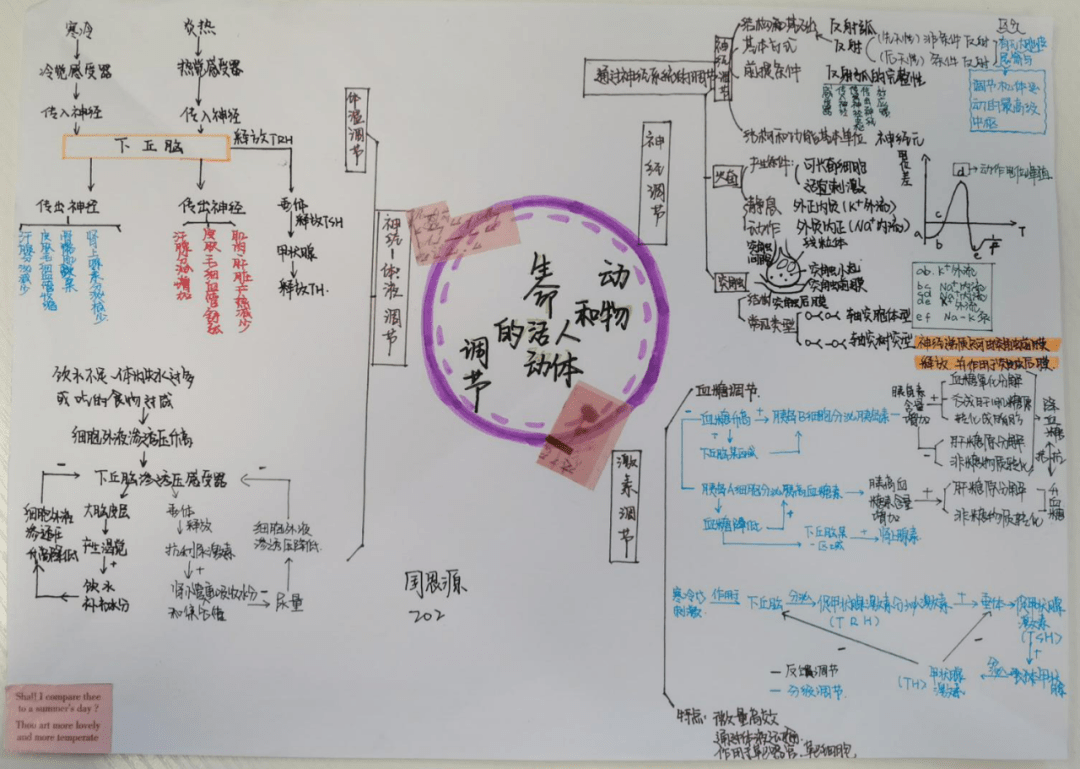 寒冷
炎热
冷觉感受器
热觉感受器
传入神经
传入神经
下丘脑
释放TRH
传出神经
传出神经
垂体
释放TSH
甲状腺
释放TH
汗腺分泌减少
肾上腺素分泌减少
汗腺分泌增加
皮肤毛细血管舒张
体温调节
神经-体液调节
饮水不足、体内失水过多
或吃的食物过咸
细胞外液渗透压升高
下丘脑渗透压感受器
大脑皮层
产生渴觉
+
饮水
补充水分
垂体
释放
抗利尿激素
+
尿量
细胞外液
渗透压降低
动物和人体
生命活动的
调节
周恩源
202
通过神经系统的调节
神经调节
结构基础 反射弧
基本方式 反射
非条件反射
条件反射
前提条件 反射弧的完整性
感受器
传入神经
神经中枢
传出神经
效应器
调节机体运
动的最高级
中枢
结构和功能基本单位 神经元
神经调节
兴奋
产生条件:
可兴奋细胞
适宜刺激
静息 外正内负(K⁺外流)
动作 外负内正(Na⁺内流)
线粒体
突触小泡
突触前膜
突触间隙
突触
结构 突触后膜
常见类型
轴突胞体型
轴突树突型
电位差
d→动作电位峰值
a b c e f
T
ab. K⁺外流
bc Na⁺内流
cd Na⁺内流
de K⁺外流
ef Na-K泵
释放 并作用于突触后膜
激素调节
血糖调节
血糖升高 + 胰岛B细胞分泌胰岛素
+
下丘脑某区域
胰岛素
含量
增加
+
血糖氧化分解
合成肝、肌糖原
转化成脂肪
-
肝糖原分解
非糖物质转化
降血糖
胰岛A细胞分泌胰高血糖素
胰高血
糖素含量
增加
+
肝糖原分解
非糖物质转化
升血糖
血糖降低
下丘脑某
一区域
+
肾上腺素
寒冷等
刺激
作用于
下丘脑
分泌
促甲状腺激素分泌激素
(TRH)
+
垂体
促甲状腺
激素
(TSH)
+
甲状腺
激素
(TH)
- 反馈调节
- 分级调节
特点: 微量高效
通过体液运输
作用于靶器官、靶细胞
Shall I compare thee
to a summer's day ?
Thou art more lovely
and more temperate